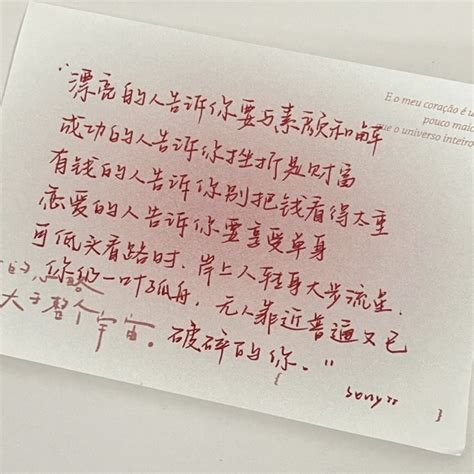 E o meu coração é u
pouco maio
que o universo inteiro
"漂亮的人告诉你要与素颜和解
成功的人告诉你挫折是财富
有钱的人告诉你别把钱看得太重
恋爱的人告诉你要享受单身
可低头看路时，岸上人轻身大步流星，
你仍一叶孤舟，无人靠近普遍又已
破碎的你。"
大于整个宇宙。